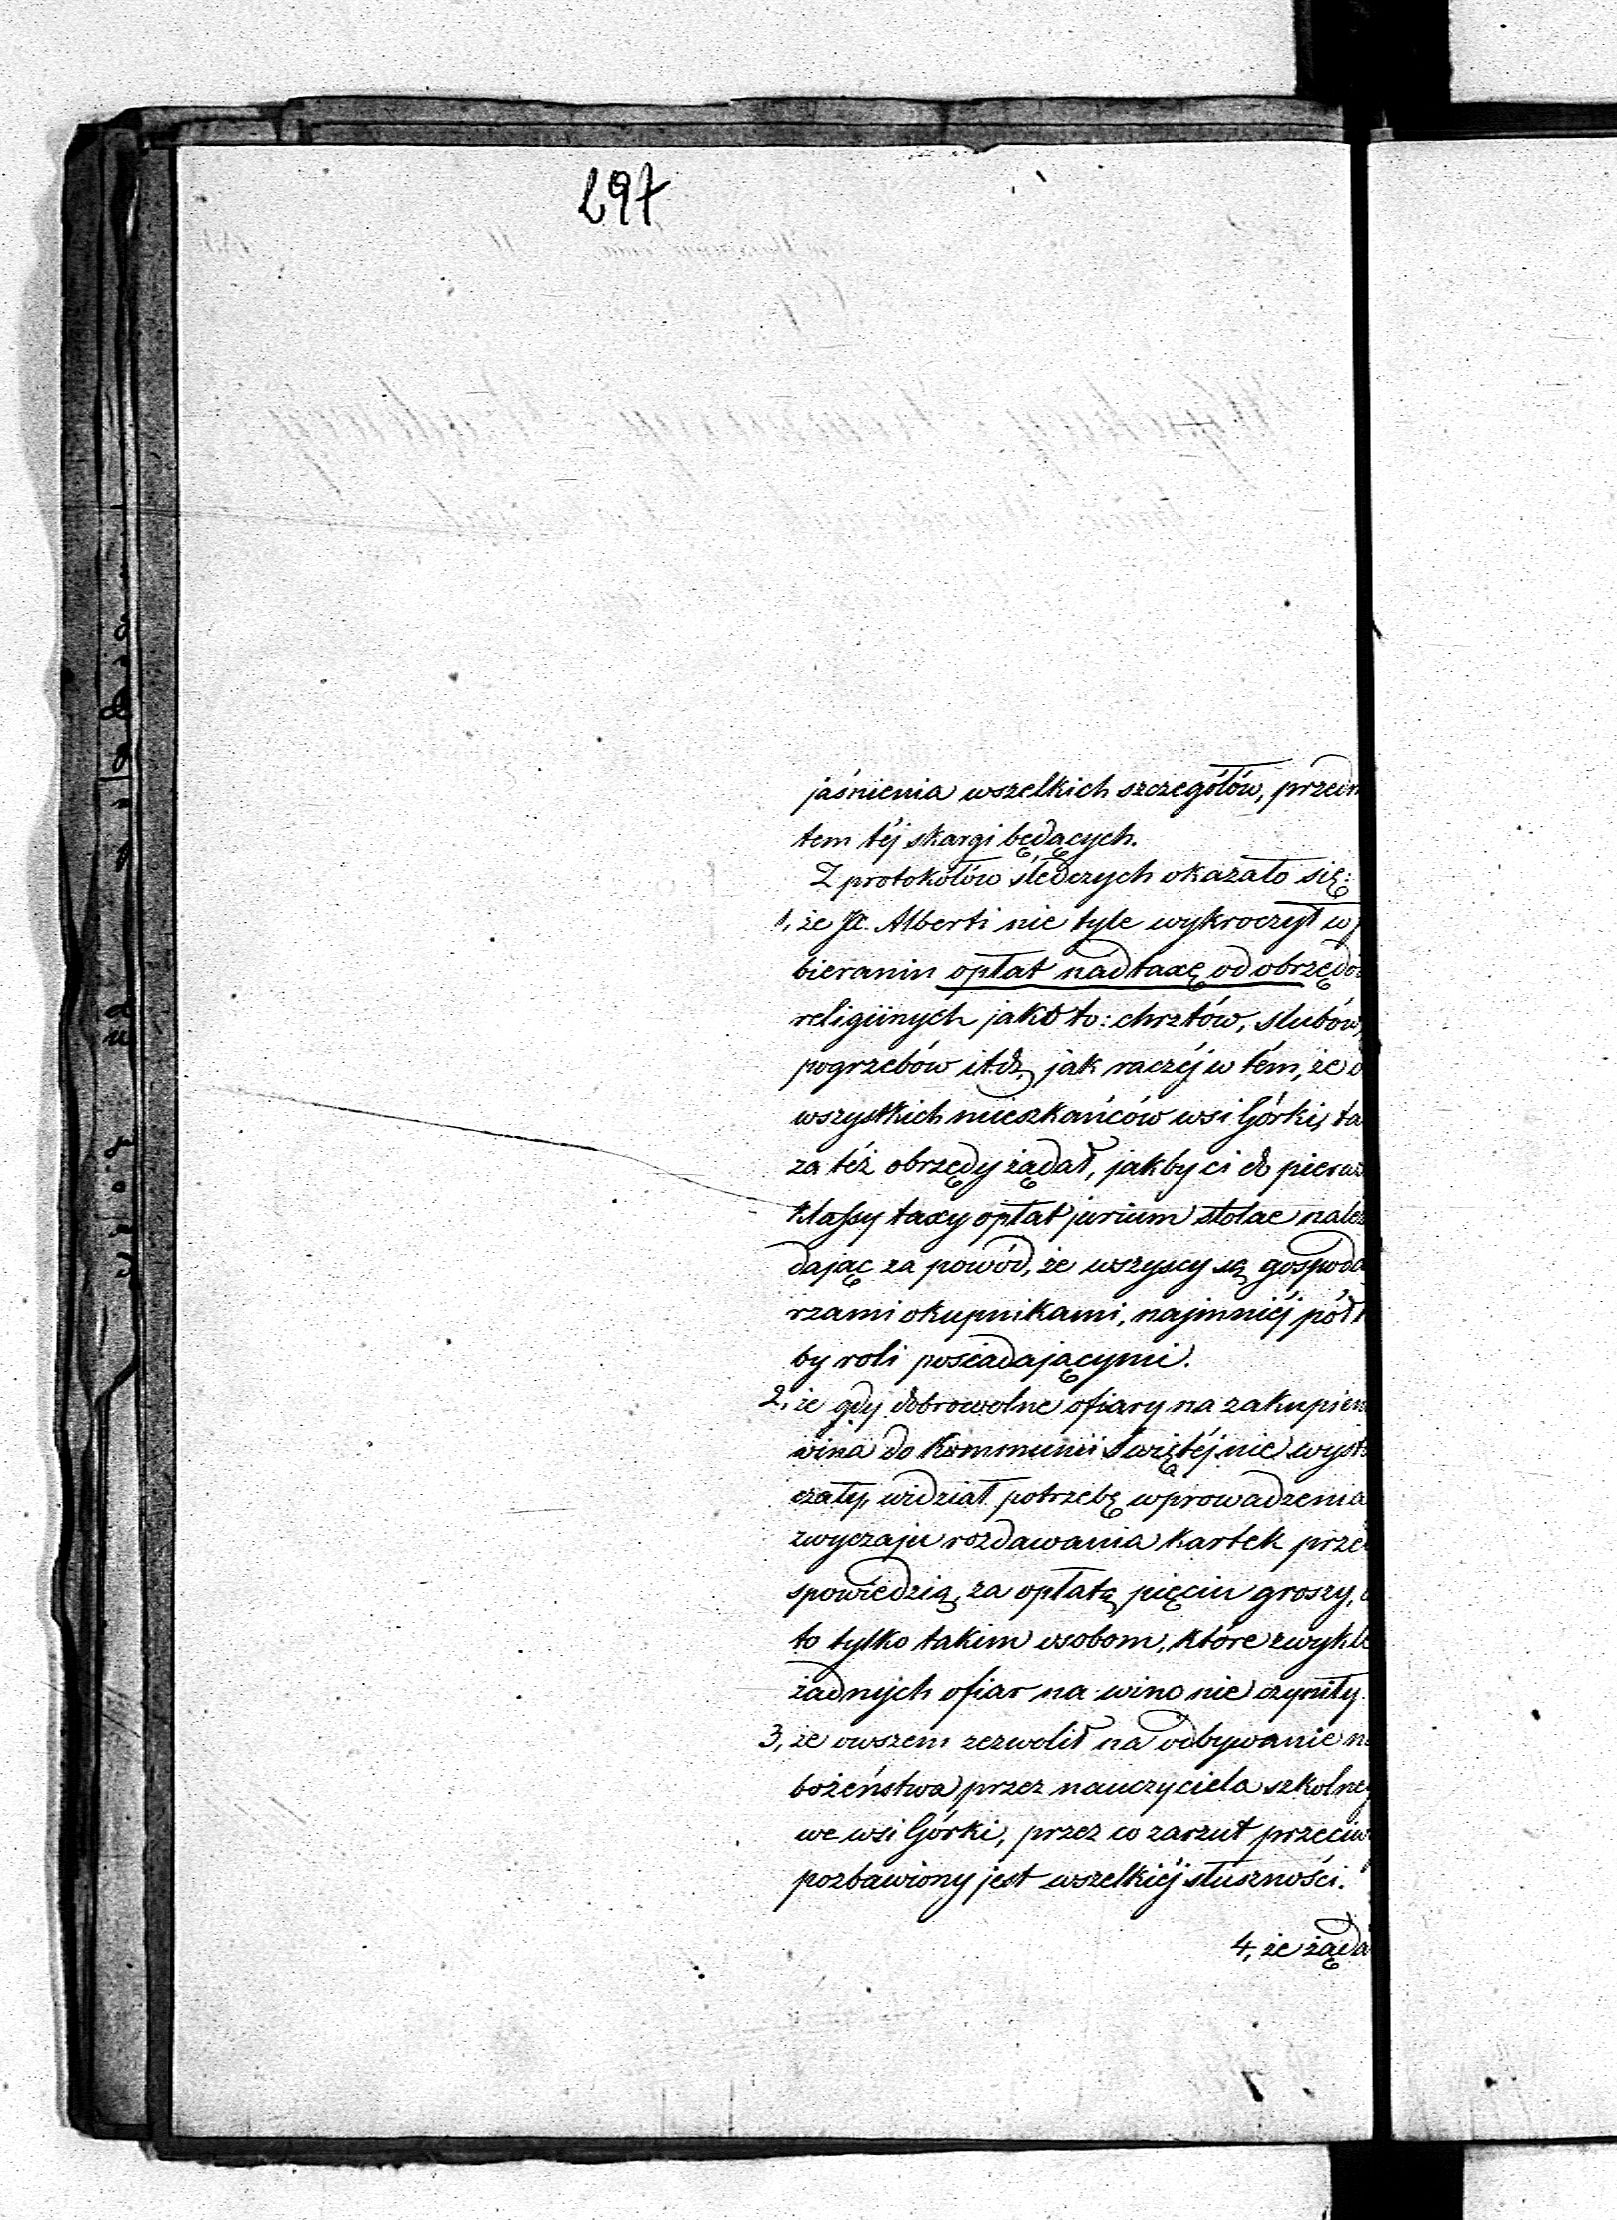 297
jaśnienia wszelkich szczegółów, przedm
tem téj skargi będących.
Z protokółów śledczych okazało się:
1, że JX. Alberti nie tyle wykroczył w p
bieraniu opłat nad taxę od obrzędów
religiinych jako to: chrztów, ślubów,
pogrzebów itd, jak raczéj w tém, że o
wszystkich mieszkańców wsi Górki, ta
za téż obrzędy żądał, jakby ci do pierws
klassy taxy opłat jurium stolae nale
dając za powód, że wszyscy są gospoda
rzami okupnikami, najmniéj pół
by roli posiadającymi.
2, że gdy dobrowolne ofiary na zakupien
wina do Kommunii Świętéj nie wysta
czały, widział potrzebę wprowadzenia
zwyczaju rozdawania kartek przed
spowiedzią, za opłatą pięciu groszy,
to tylko takim osobom, które zwykle
żadnych ofiar na wino nie czyniły.
3, że owszem zezwolił na odbywanie na
bożeństwa przez nauczyciela szkolneg
we wsi Górki, przez co zarzut przeciw
pozbawiony jest wszelkiéj słuszności.
4, że żąda